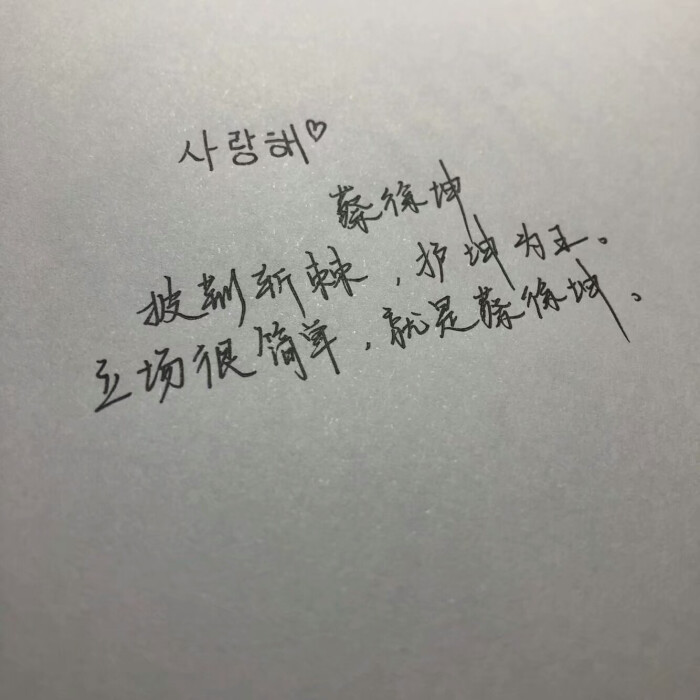 사랑해♡
蔡徐坤
披荆斩棘，护坤为王。
立场很简单，就是蔡徐坤。